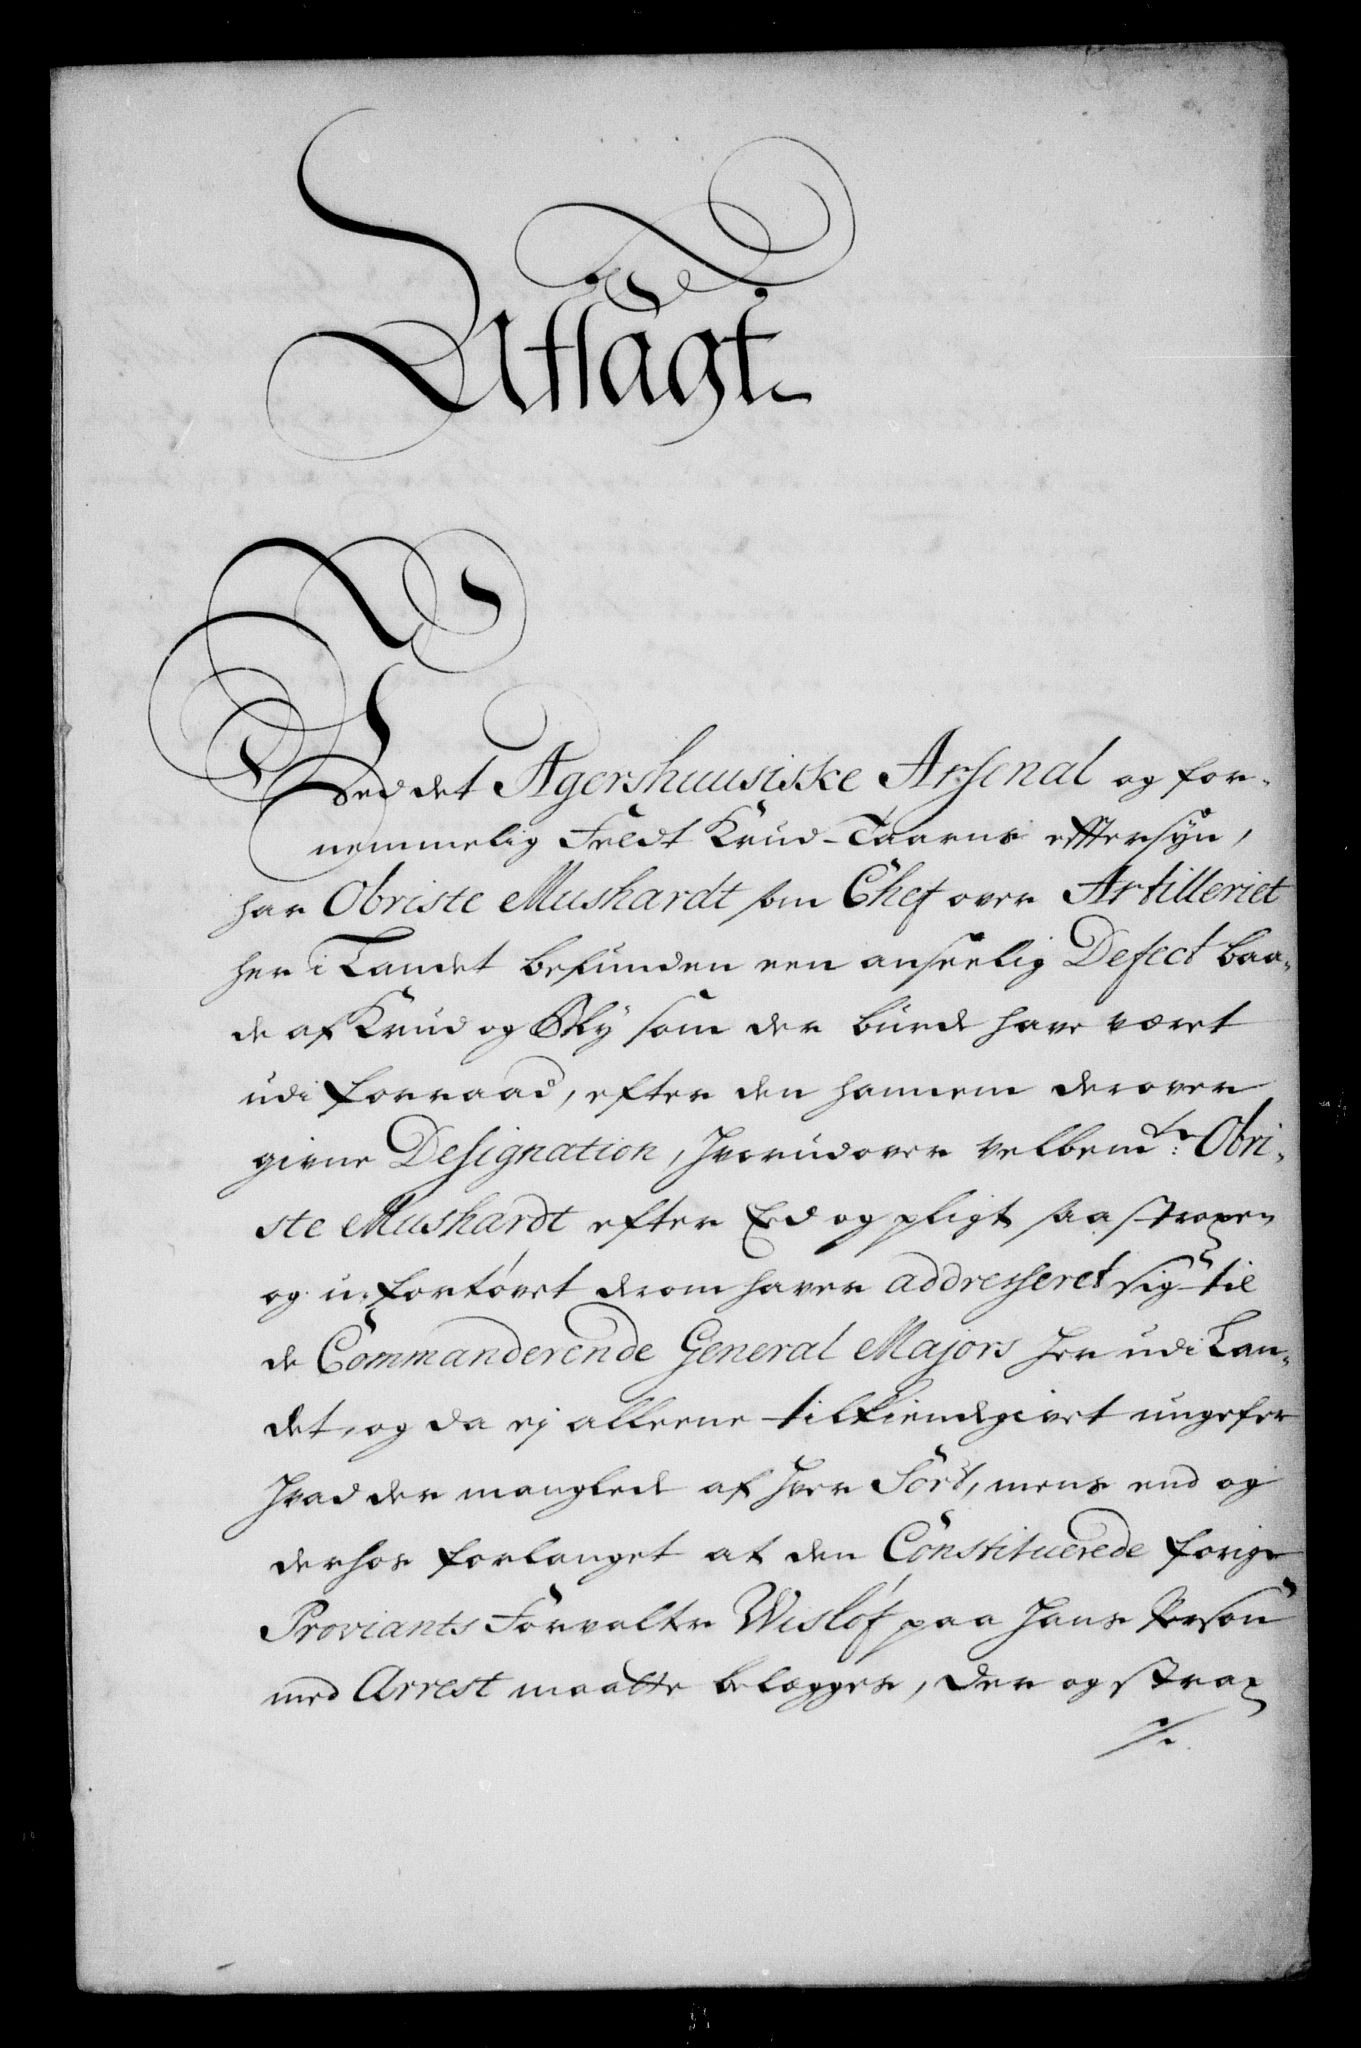 Udsagt
Ved det Agershuusiske Arsenal og for-
nemmelig Feldt Krud-Taarns efftersyn,
har Obriste Mushardt som Chef over Artilleriet
her i Landet befunden een anseelig Defect baa-
de af Krud og Bly som der burde have været
udi forraad, efter den hannem derover
givne Designation, hvorudover Velbemte: Obri-
ste Mushardt efter Eed og pligt saa straxen
og ufortøvet derom haver addresseret sig til
de Commanderende General Majors her udi Lan-
det, og da ej alleene tilkiendgivet ungefer
hvad der manglede af hver Sort, mens end og
derhos forlanget at den Constituerede forrige
Proviants Forvalter Wisløf paa hans Person
med Arrest maatte belægges, der og strax